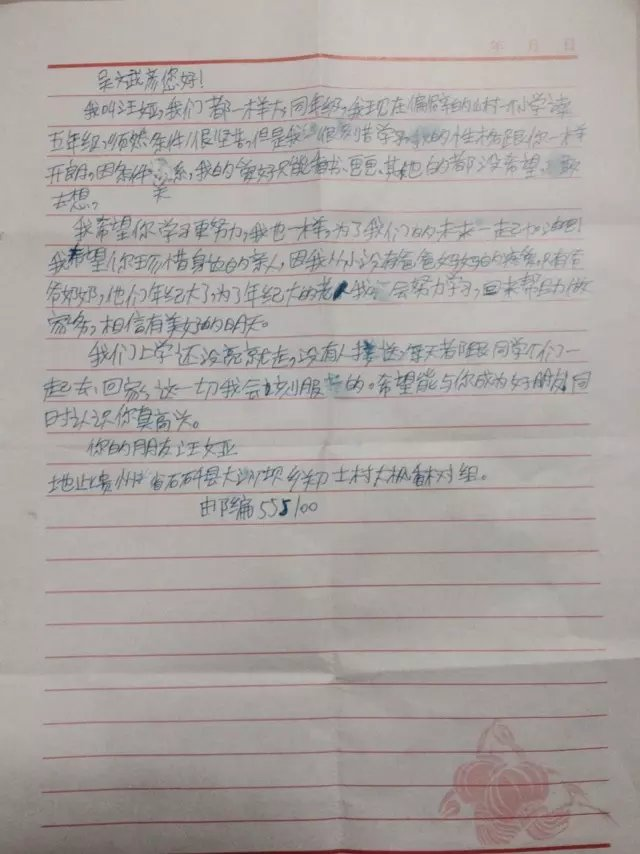 年 月 日
吴斌彦您好!
我叫汪娅,我们都一样大,同年级,我现在偏僻的山村一小学读
五年级,虽然条件很坚苦,但是我 很珍惜学 的性格跟你一样
开朗,因条件 关系,我的爱好只能看书、画画、其他的都没希望
去想。
我希望你学习更努力,我也一样,为了我们的未来一起加油吧!
我希望你珍惜身边的亲人,因我从小没有爸爸妈妈的疼爱,只有爷
爷奶奶,他们年纪大了,为了年纪大的 我 会努力学习,回来帮助做
家务,相信有美好的明天。
我们上学还没亮就走,没有人接送,每天都跟同学们一
起去、回家,这一切我会克服 的。希望能与你成为好朋友,同
时认识你真高兴。
你的朋友:汪娅
地址:贵州省石阡县大沙坝乡 土村大枫香树组。
邮编555100